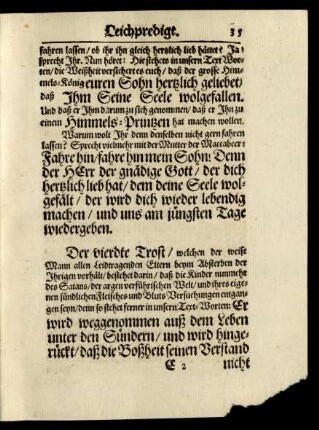 Leichpredigt. 35
fahren lassen / ob ihr ihn gleich hertzlich lieb hättet? Ja /
sprecht Ihr. Nun höret: Hie stehets in unsern Text Wor-
ten / die Weißheit versichert es euch / daß der grosse Him-
mels-König euren Sohn hertzlich geliebet /
daß Ihm Seine Seele wolgefallen.
Und daß er Ihn darum zu sich genommen / daß er Ihn zu
einen Himmels-Printzen hat machen wollen.
Warum wolt Ihr denn denselben nicht gern fahren
lassen? Sprecht vielmehr mit der Mutter der Maccabeer:
Fahre hin / fahre hin mein Sohn! Denn
der HErr der gnädige Gott / der dich
hertzlich lieb hat / dem deine Seele wol-
gefält / der wird dich wieder lebendig
machen / und uns am jüngsten Tage
wiedergeben.
Der vierdte Trost / welchen der weise
Mann allen Leidtragenden Eltern beym Absterben der
Ihrigen vorhält / bestehet darin / daß die Kinder nunmehr
des Satans / der argen verführischen Welt / und ihres eige-
nen sündlichen Fleisches und Bluts Versuchungen entgan-
gen seyn / denn so stehet ferner in unsern Text-Worten: Er
wird weggenommen auß dem Leben
unter den Sündern / und wird hinge-
rückt / daß die Boßheit seinen Verstand
E 2 nicht